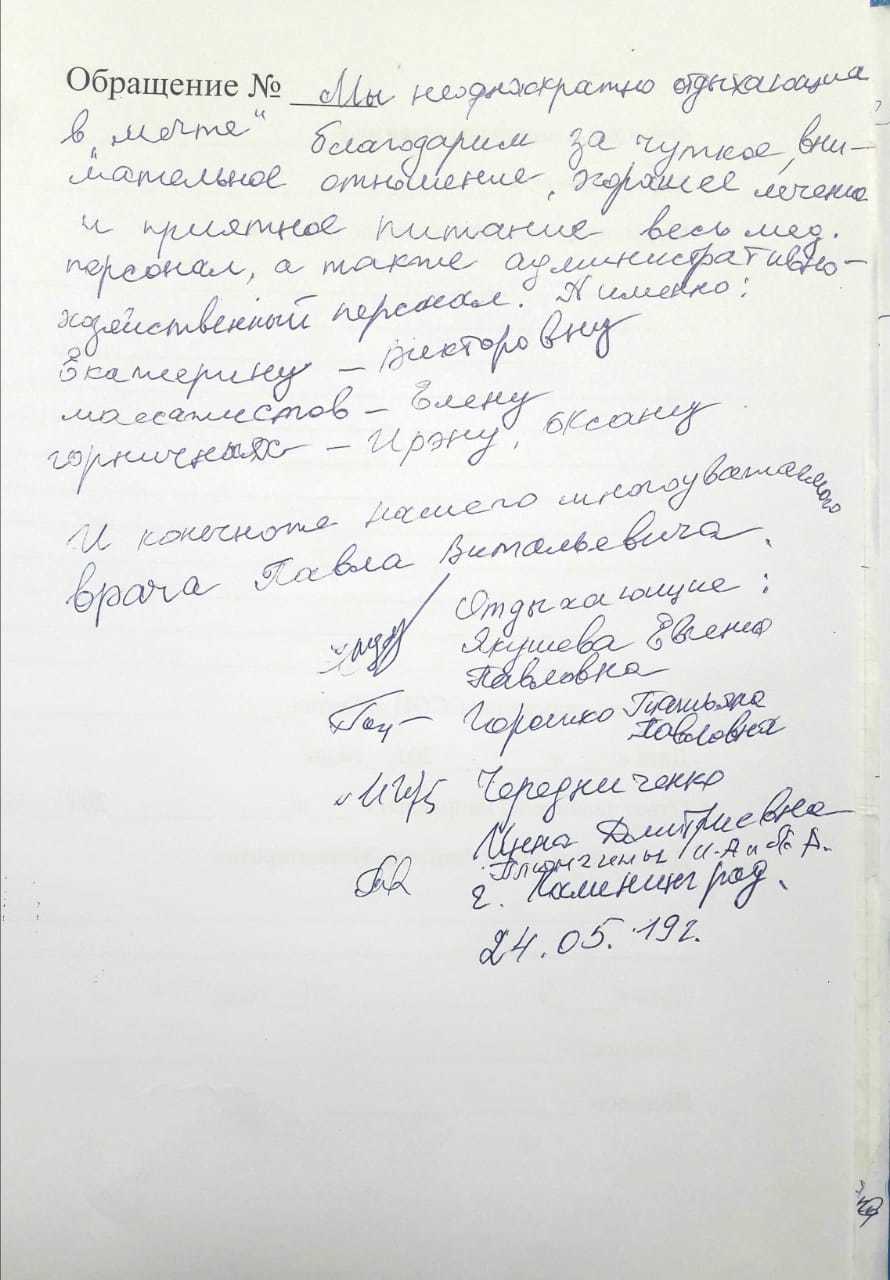 Обращение № Мы неоднократно отдыхающие
в „мечте“ благодарим за чуткое, вни-
мательное отношение, хорошее лечение
и приятное питание весь мед.
персонал, а также административно-
хозяйственный персонал. А именно:
Екатерину – Викторовну
массажистов – Елену
горничных – Ирэну, Оксану
И конечноже нашего многоуважаемого
врача Павла Витальевича.
Отдыхающие:
Якушева Евгения
Павловна
Горошко Татьяна
Павловна
Чередниченко
Инна Дмитриевна
г. Калининград.
24.05.19г.